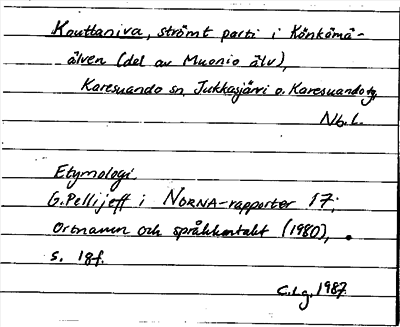 Kouttaniva, strömt parti i Könkämä-
älven (del av Muonio älv),
Karesuando sn, Jukkasjärvi o. Karesuando tg,
Nb.l.
Etymologi
G. Pellijeff i NORNA-rapporter 17;
Ortnamn och språkkontakt (1980),
s. 19f.
C.l.g. 1987